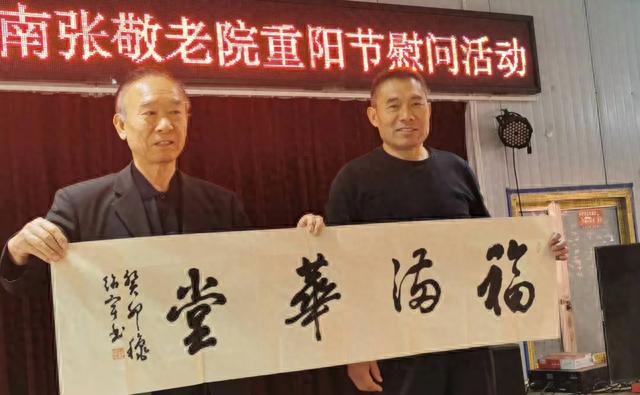 南张敬老院重阳节慰问活动
福满華堂
癸卯穐
书